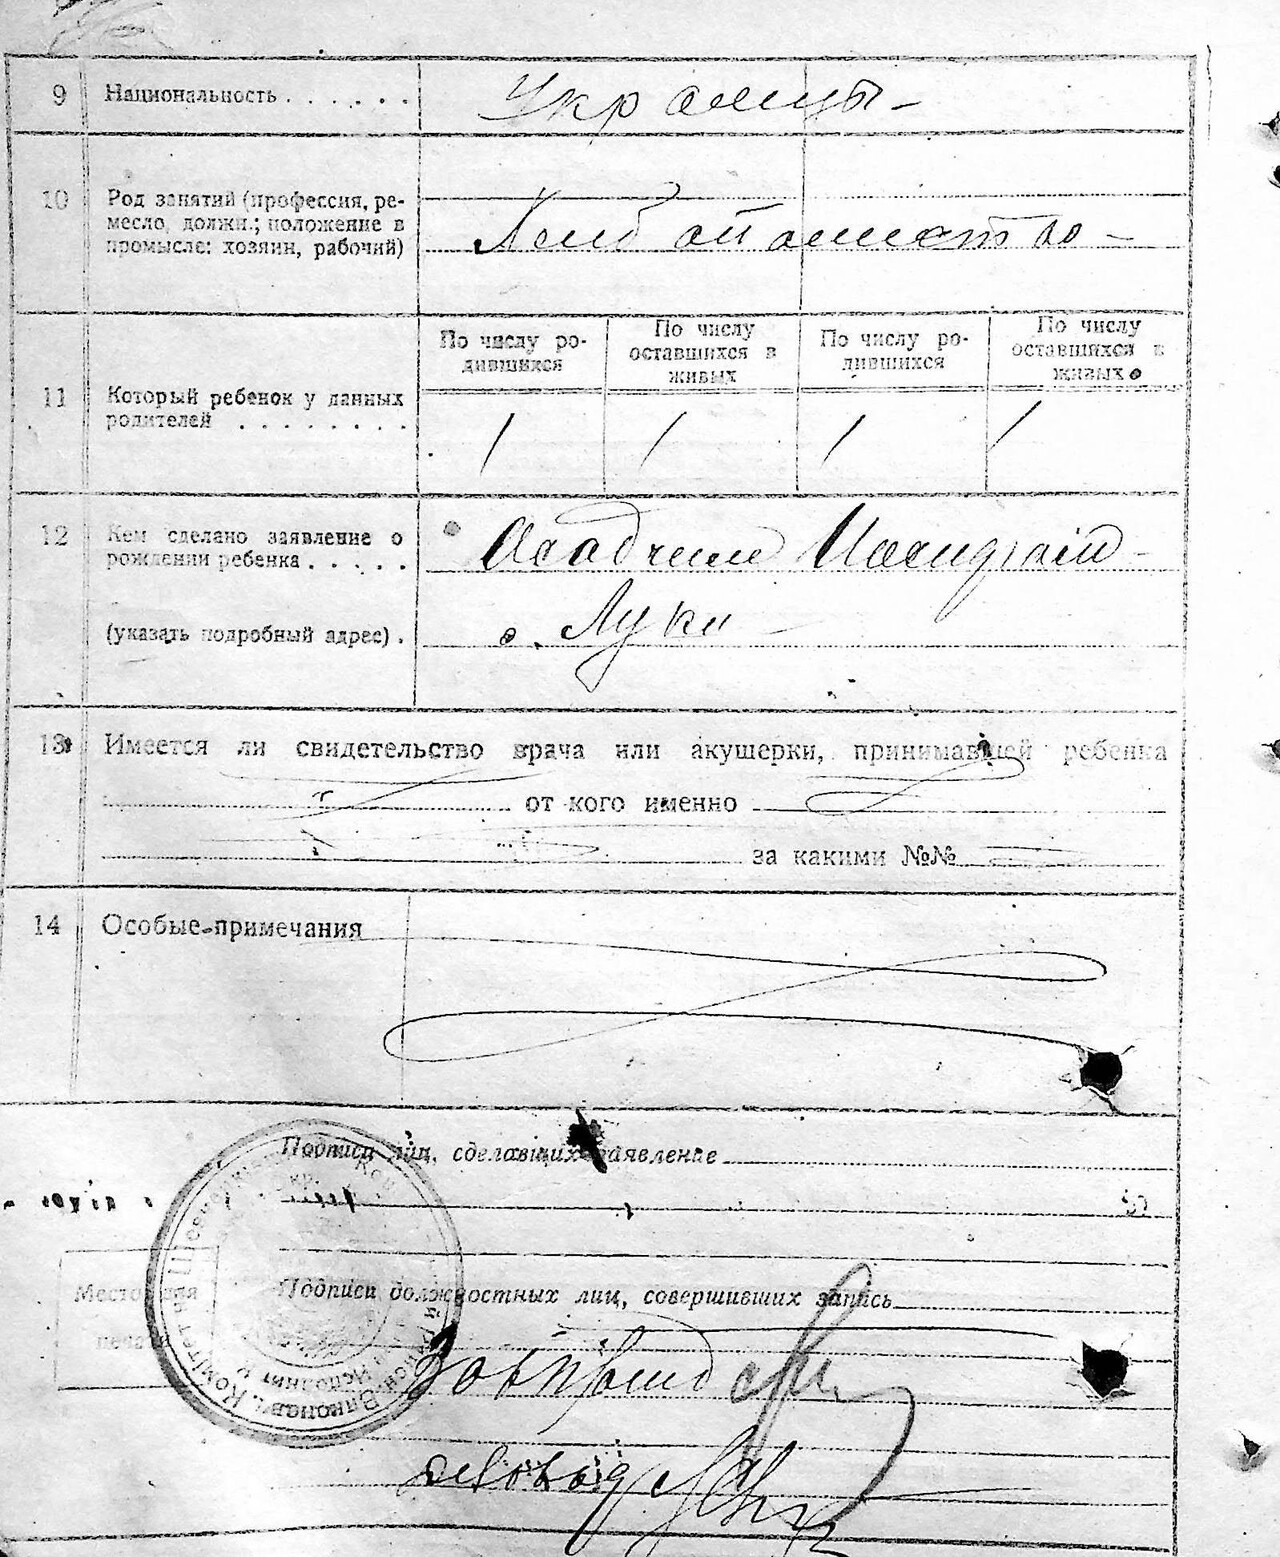 9 Национальность . . . . . .
Украинцы -
10 Род занятий (профессия, ре-
месло, должн.; положение в
промысле: хозяин, рабочий)
Хлебопашество -
По числу ро-
дившихся
По числу
оставшихся в
живых
По числу ро-
дившихся
По числу
оставшихся в
живых
11 Который ребенок у данных
родителей . . . . . . . .
1 1 1 1
12 Кем сделано заявление о
рождении ребенка . . . . .
(указать подробный адрес) .
с. Луки
13 Имеется ли свидетельство врача или акушерки, принимавшей ребенка
от кого именно
за какими №№
14 Особые примечания
Подписи лиц, сделавших заявление
Место для
печати
Подписи должностных лиц, совершивших запись